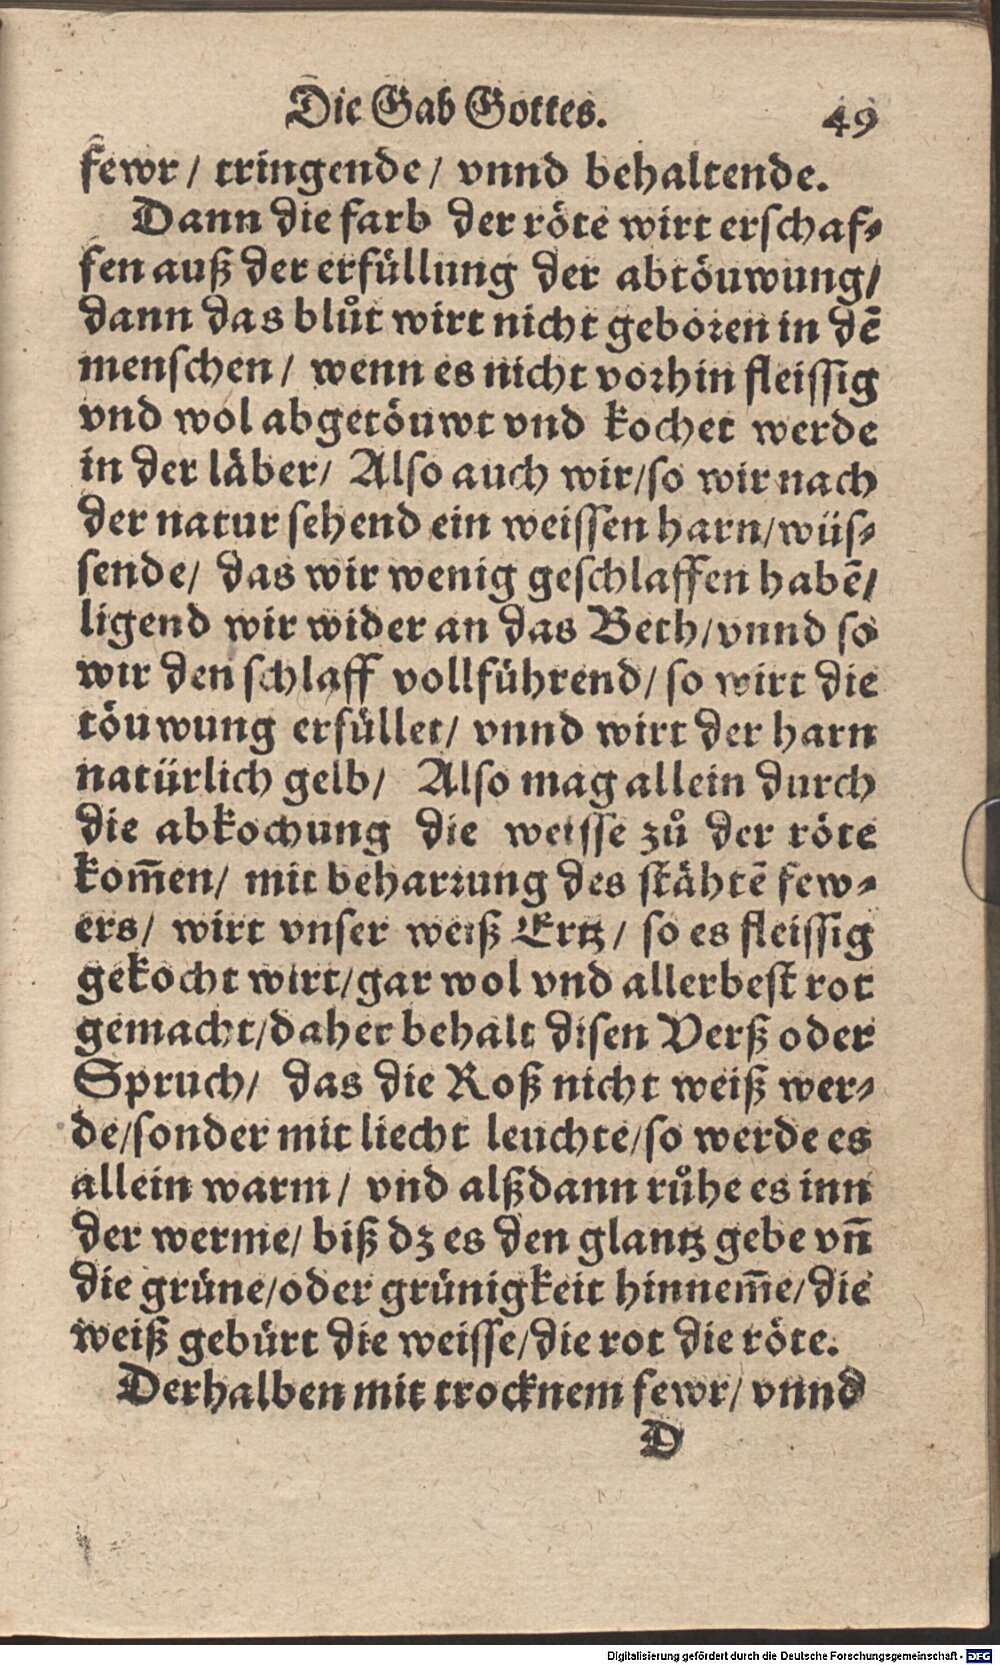 Die Gab Gottes. 49
fewr / tringende / vnnd behaltende.
Dann die farb der röte wirt erschaf⸗
fen auß der erfüllung der abtöuwung /
dann das blůt wirt nicht geboren in dē
menschen / wenn es nicht vorhin fleissig
vnd wol abgetöuwt vnd kochet werde
in der läber / Also auch wir / so wir nach
der natur sehend ein weissen harn / wüs⸗
sende / das wir wenig geschlaffen habē /
ligend wir wider an das Beth / vnnd so
wir den schlaff vollführend / so wirt die
töuwung erfüllet / vnnd wirt der harn
natürlich gelb / Also mag allein durch
die abkochung die weisse zů der röte
kom̄en / mit beharrung des stähtē few⸗
ers / wirt vnser weiß Ertz / so es fleissig
gekocht wirt / gar wol vnd allerbest rot
gemacht / daher behalt disen Verß oder
Spruch / das die Roß nicht weiß wer⸗
de / sonder mit liecht leuchte / so werde es
allein warm / vnd alßdann růhe es inn
der werme / biß dz es den glantz gebe vn̄
die grüne / oder grünigkeit hinnem̄e / die
weiß gebürt die weisse / die rot die röte.
Derhalben mit trocknem fewr / vnnd
D
Digitalisierung gefördert durch die Deutsche Forschungsgemeinschaft - DFG